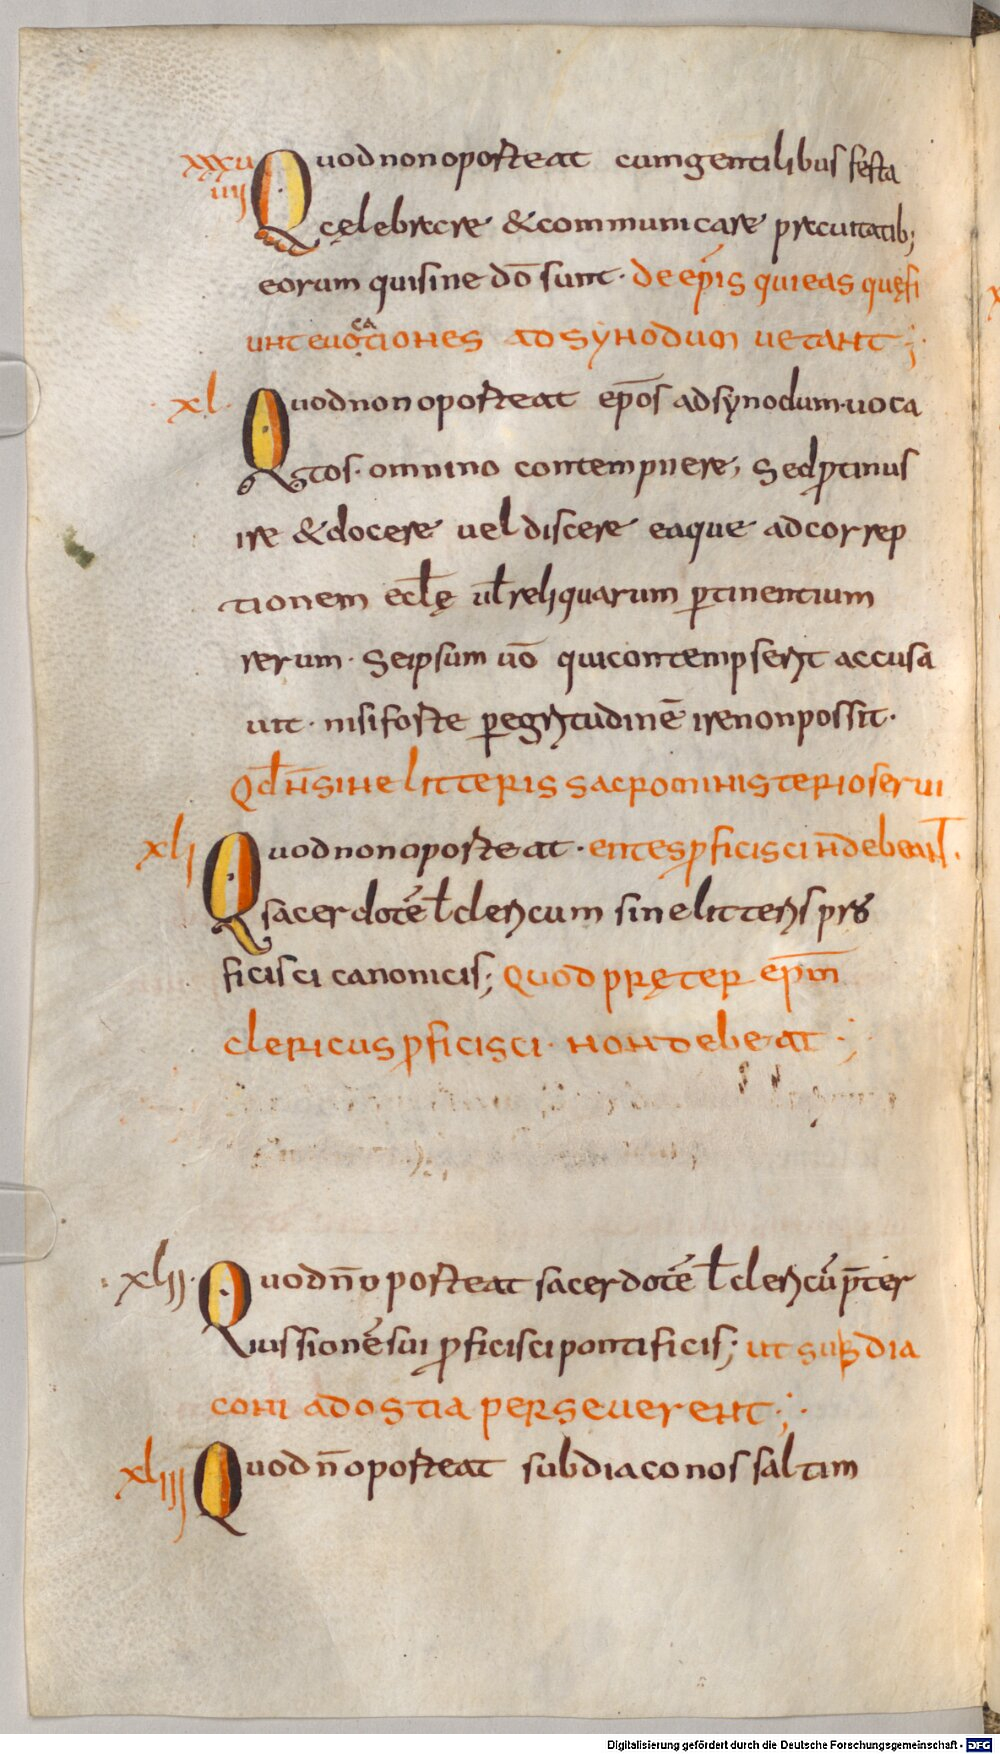 xxxu Quod non oporteat cum gentilibus festa
iiij cęlebrare & communicare pracuitatib;
eorum qui sine dō sunt · de ep̄is qui eas quę fi
unt euocationes ad synodum uetant ;
xl · Quod non oporteat ep̄os ad synodum · uoca
tos · omnino contempnere; Sed ꝓtinus
ire & docere uel discere eaque ad correp
tionem eclę ul reliquarum ꝑtinentium
rerum · Seipsum uō qui contempserit accusa
uit · nisi forte ꝑ egritudinē ire non possit ·
Qd n̄ sine litteris sacro ministerio serui
xli Quod non oporteat · entes ꝓficisci n̄ debeant .
sacerdotē ł clericum sine litteris pro
ficisci canonicis; Quod pręter ep̄m
clericus ꝓficisci · non debeat ;
xlii · Quod n̄ oporteat sacerdotē ł clericū p̄ter
iussionē sui ꝓficisci pontificis; ut subdia
coni ad ostia perseuerent ;
xliii Quod n̄ oporteat subdiaconos saltim
Digitalisierung gefördert durch die Deutsche Forschungsgemeinschaft - DFG